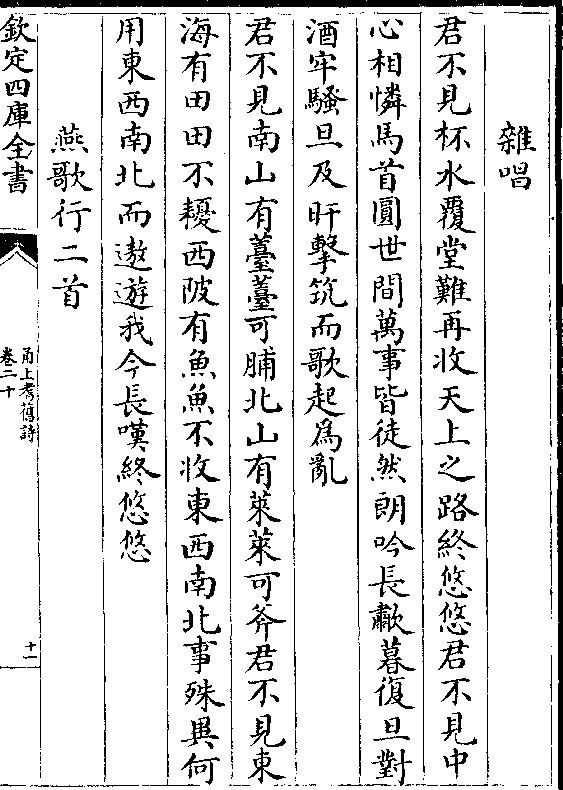 雜唱
君不見杯水覆堂難再收天上之路終悠悠君不見中
心相憐馬首圓世間萬事皆徒然朗吟長歗暮復旦對
酒牢騷旦及旰擊筑而歌起為亂
君不見南山有薹薹可脯北山有萊萊可斧君不見東
海有田田不耰西陂有魚魚不收東西南北事殊異何
用東西南北而遨遊我今長嘆終悠悠
燕歌行二首
欽定四庫全書
甬上耆舊詩
卷二十
十一